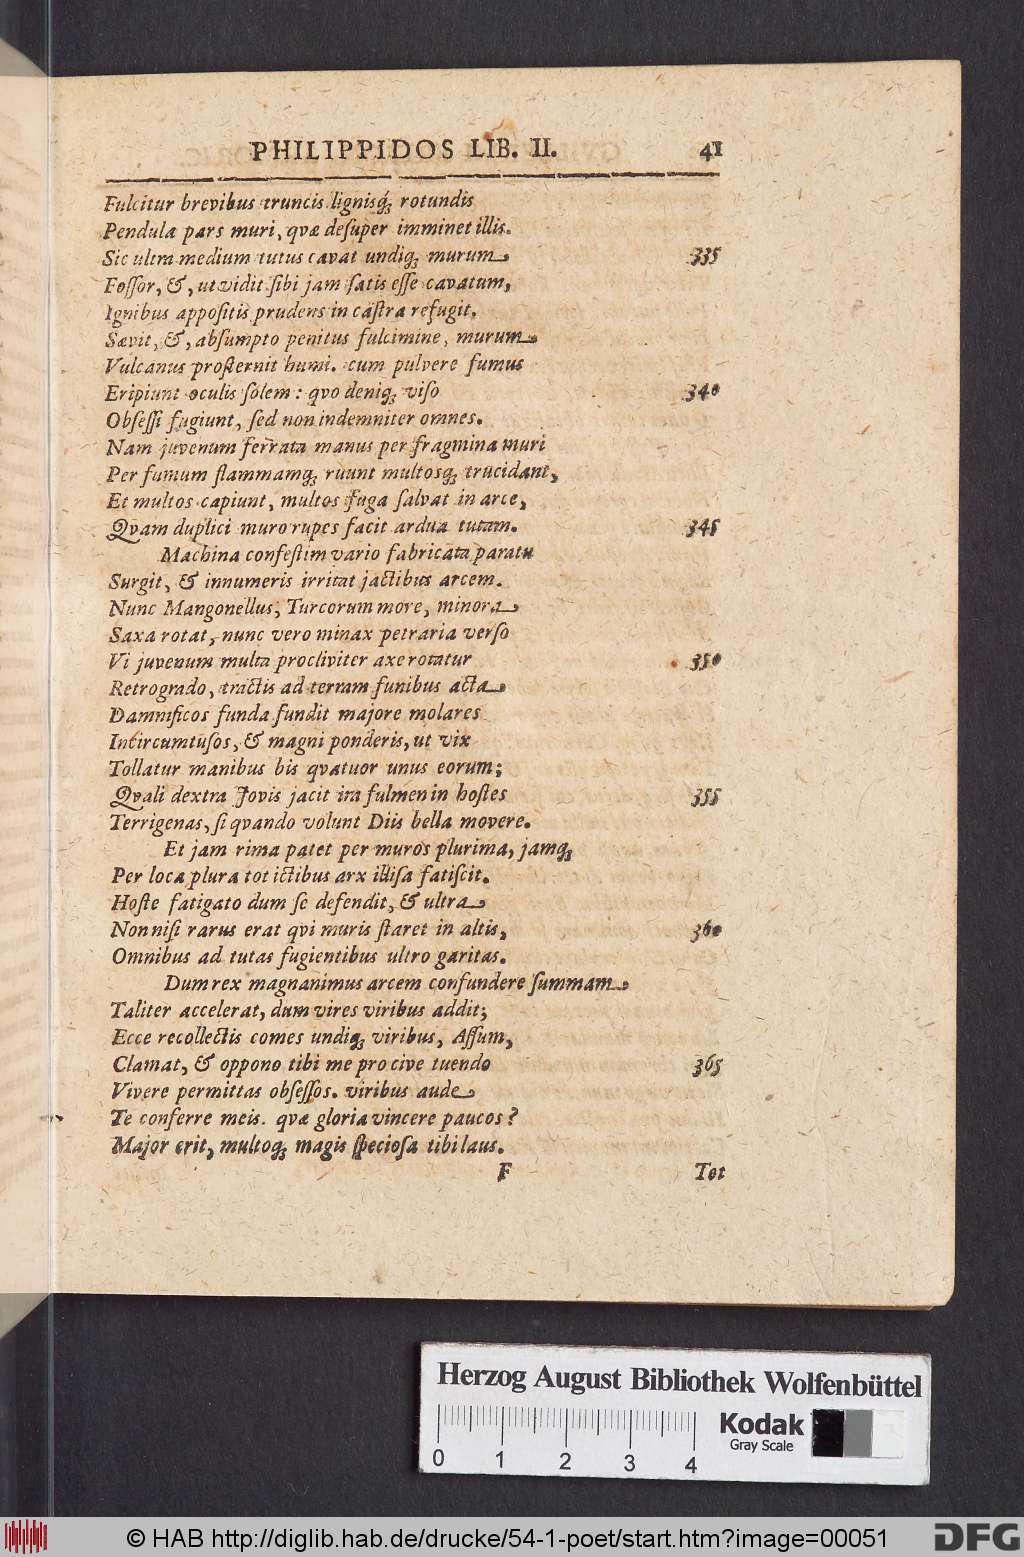 PHILIPPIDOS LIB. II. 41
Fulcitur brevibus truncis lignisq́; rotundis
Pendula pars muri, qvæ deſuper imminet illis.
Sic ultra medium tutus cavat undiq; murum 335
Foſſor, &, ut vidit ſibi jam ſatis eſſe cavatum,
Ignibus appoſitis prudens in caſtra refugit.
Sævit, &, abſumpto penitus fulcimine, murum
Vulcanus proſternit humi. cum pulvere fumus
Eripiunt oculis ſolem: qvo deniq; viſo 340
Obſeſſi fugiunt, ſed non indemniter omnes.
Nam juvenum ferrata manus per fragmina muri
Per fumum flammamq; ruunt multosq; trucidant,
Et multos capiunt, multos fuga ſalvat in arce,
Qvam duplici muro rupes facit ardua tutam. 345
Machina confeſtim vario fabricata paratu
Surgit, & innumeris irritat jactibus arcem.
Nunc Mangonellus, Turcorum more, minora
Saxa rotat, nunc vero minax petraria verſo
Vi juvenum multa procliviter axe rotatur 350
Retrogrado, tractis ad terram funibus acta
Damnificos funda fundit majore molares
Incircumtuſos, & magni ponderis, ut vix
Tollatur manibus bis qvatuor unus eorum;
Qvali dextra Jovis jacit ira fulmen in hoſtes 355
Terrigenas, ſi qvando volunt Diis bella movere.
Et jam rima patet per muros plurima, jamq;
Per loca plura tot ictibus arx illiſa fatiſcit.
Hoſte fatigato dum ſe defendit, & ultra
Non niſi rarus erat qvi muris ſtaret in altis, 360
Omnibus ad tutas fugientibus ultro garitas.
Dum rex magnanimus arcem confundere ſummam
Taliter accelerat, dum vires viribus addit;
Ecce recollectis comes undiq; viribus, Aſſum,
Clamat, & oppono tibi me pro cive tuendo 365
Vivere permittas obſeſſos. viribus aude
Te conferre meis. qvæ gloria vincere paucos?
Major erit, multoq; magis ſpecioſa tibi laus.
F Tot
Herzog August Bibliothek Wolfenbüttel
0 1 2 3 4
Kodak
Gray Scale
© HAB http://diglib.hab.de/drucke/54-1-poet/start.htm?image=00051
DFG